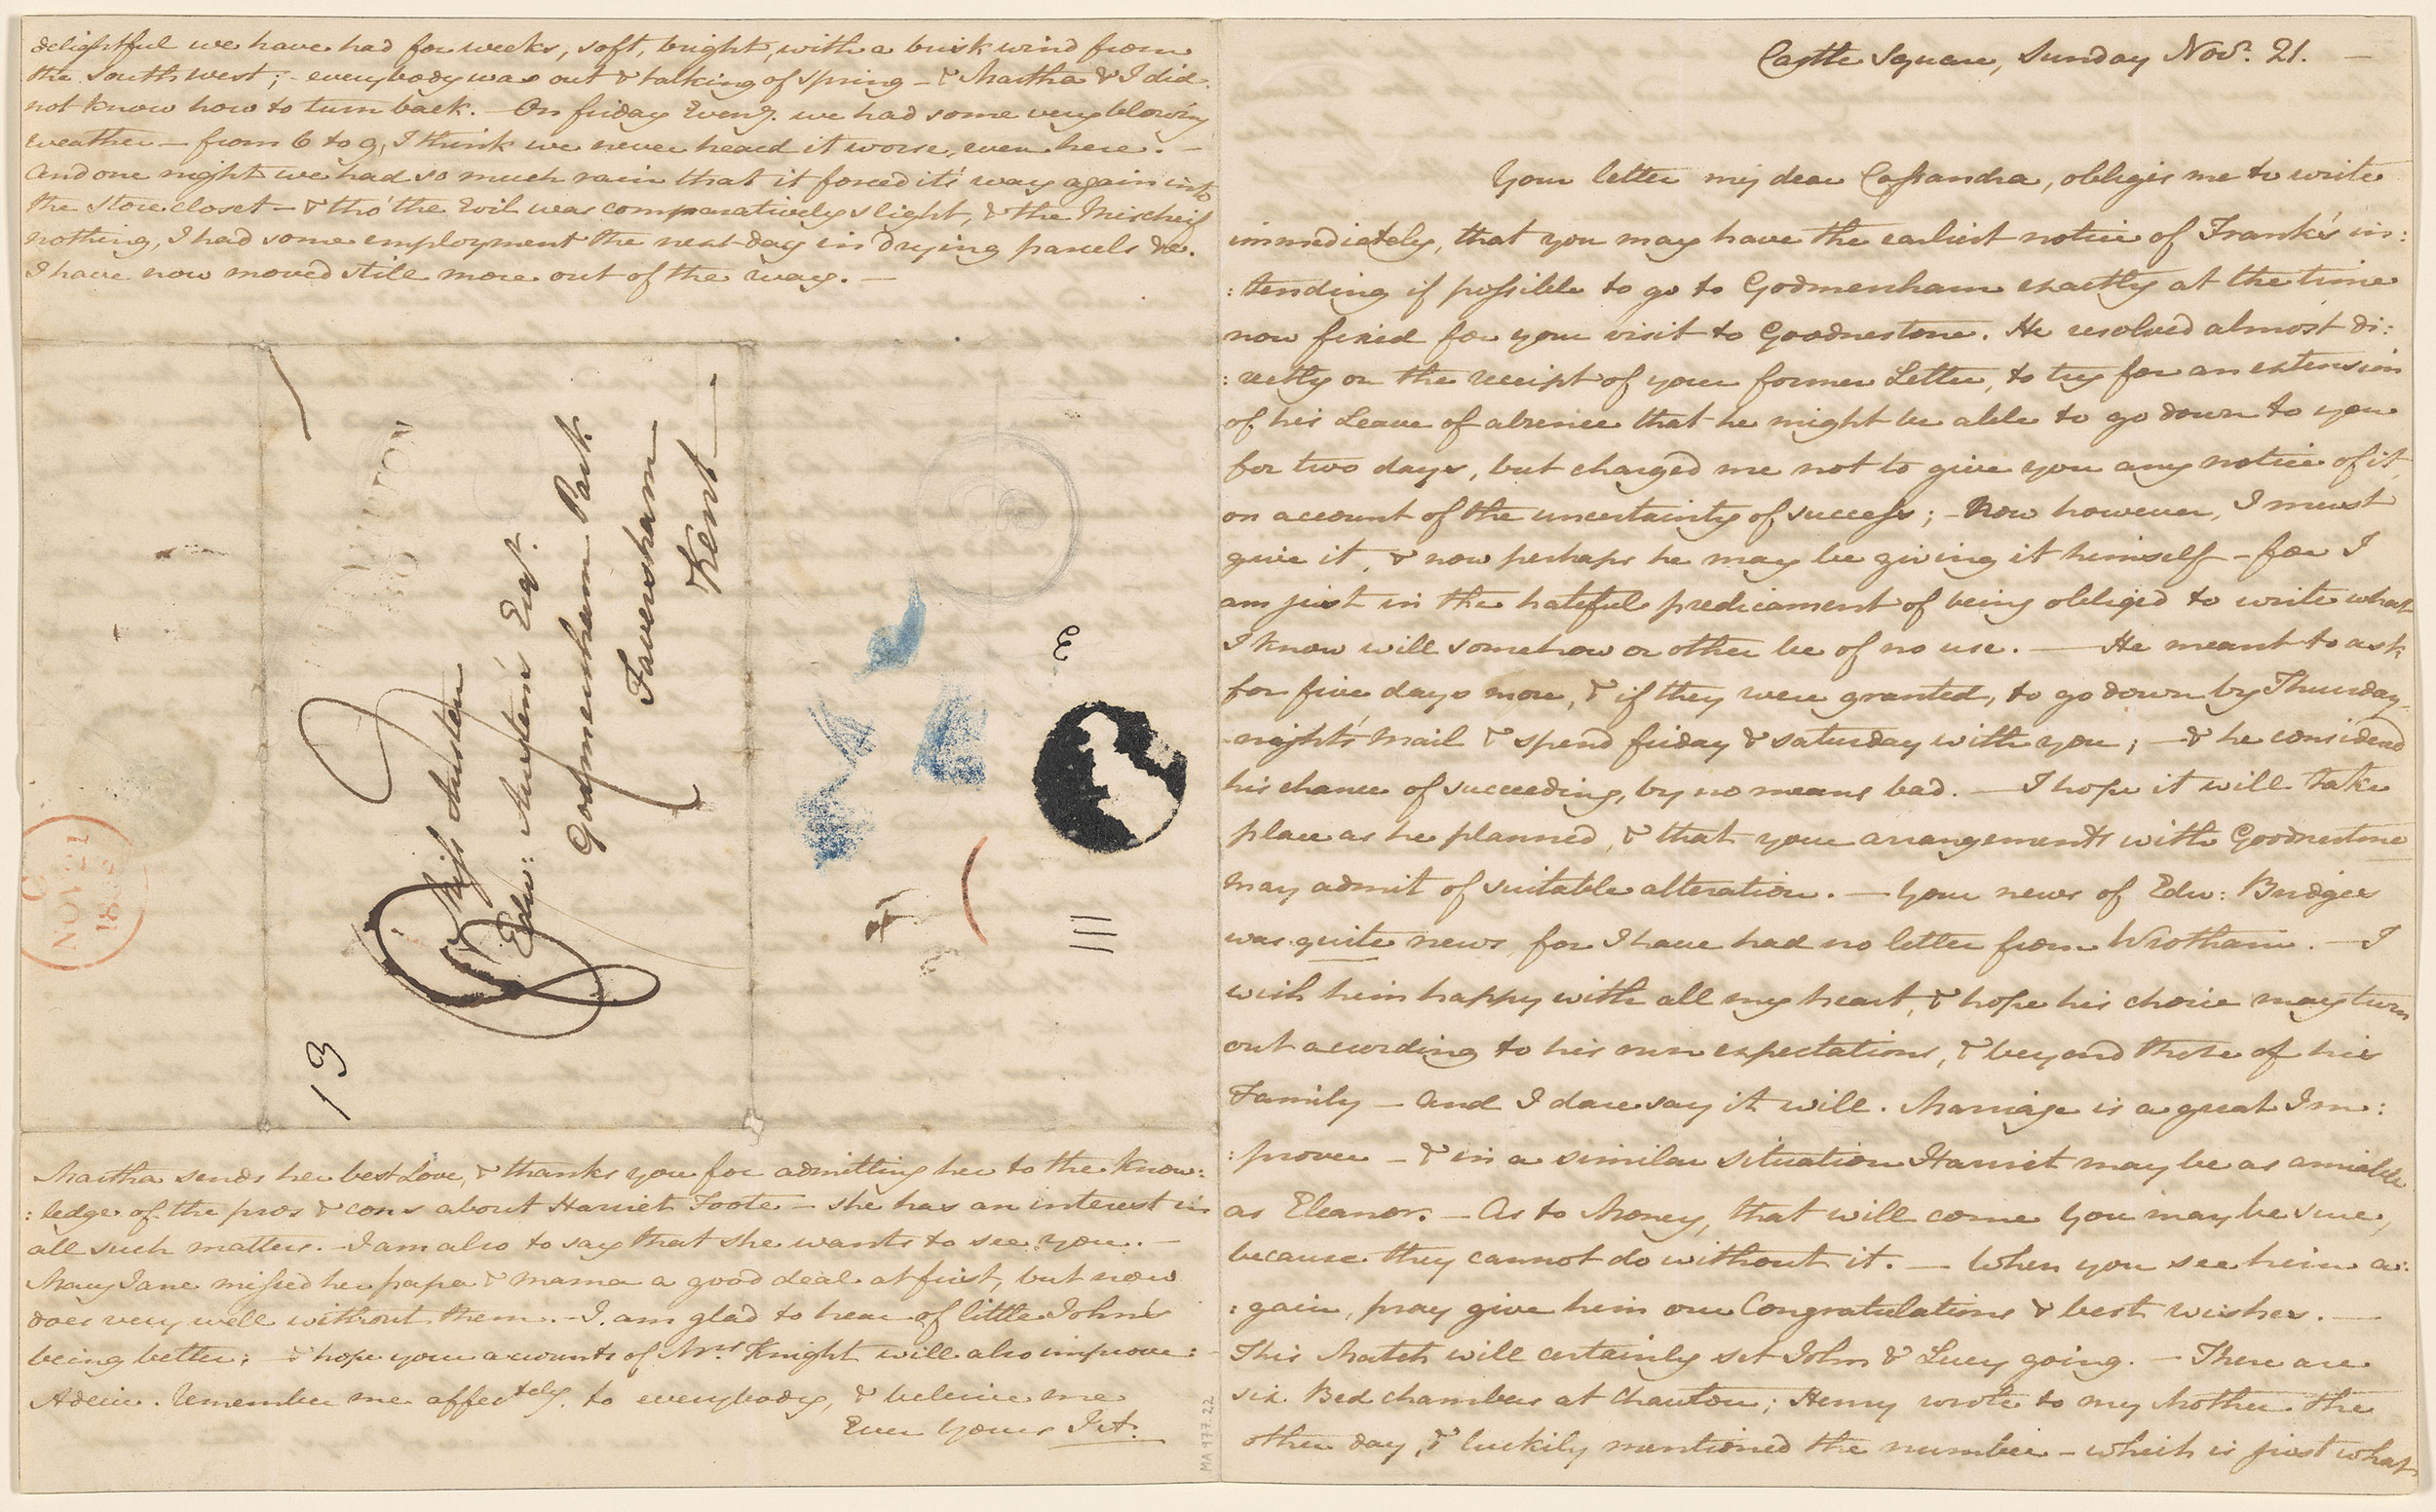 Castle Square, Sunday Novr. 21. —
Your letter my dear Cassandra, obliges me to write
immediately, that you may have the earliest notice of Frank's in:
:tending if possible to go to Godmersham exactly at the time
now fixed for your visit to Goodnestone. He resolved almost di:
:rectly on the receipt of your former Letter, to try for an extension
of his Leave of absence that he might be able to go down to you
for two days, but charged me not to give you any notice of it,
on account of the uncertainty of success; - Now however, I must
give it, & now perhaps he may be giving it himself - for I
am just in the hateful predicament of being obliged to write what
I know will somehow or other be of no use. — He meant to ask
for five days more, & if they were granted, to go down by Thursday
night's Mail & spend friday & saturday with you; — & he considered
his chance of succeeding, by no means bad. — I hope it will take
place as he planned, & that your arrangements with Goodnestone
may admit of suitable alteration. — Your news of Edw: Bridges
was quite news, for I have had no letter from Wrotham. — I
wish him happy with all my heart, & hope his choice may turn
out according to his own expectations, & beyond those of his
Family — And I dare say it will. Marriage is a great Im:
:prover — & in a similar situation Harriet may be as amiable
as Eleanor. — As to Money, that will come You may be sure,
because they cannot do without it. — When you see him a:
:gain, pray give him our Congratulations & best wishes. —
This Match will certainly set John & Lucy going. — There are
six Bed chambers at Chawton; Henry wrote to my Mother the
other day, & luckily mentioned the number — which is just what
delightful we have had for weeks, soft, bright, with a brisk wind from
the southwest; - everybody was out & talking of spring - & Martha & I did
not know how to turn back. — On friday Eveng. we had some very blowing
weather — from 6 to 9, I think we never heard it worse, even here. —
And one night we had so much rain that it forced it's way again into
the store closet — & tho' the Evil was comparatively slight, & the Mischeif
nothing, I had some employment the next day in drying parcels &c.
I have now moved still more out of the way. —
Miss Austen
Edw: Austen's Esqr.
Godmersham Park
Faversham
Kent
13
NOV 21
Martha sends her best Love, & thanks you for admitting her to the know:
:ledge of the pros & cons about Harriet Foote — she has an interest in
all such matters. — I am also to say that she wants to see you. —
Mary Jane missed her papa & mama a good deal at first, but now
does very well without them. — I am glad to hear of little John's
being better; — & hope your accounts of Mrs Knight will also improve.
Adeiu. Remember me affectely. to everybody, & beleive me
Ever Yours, J A.
MA 977.22